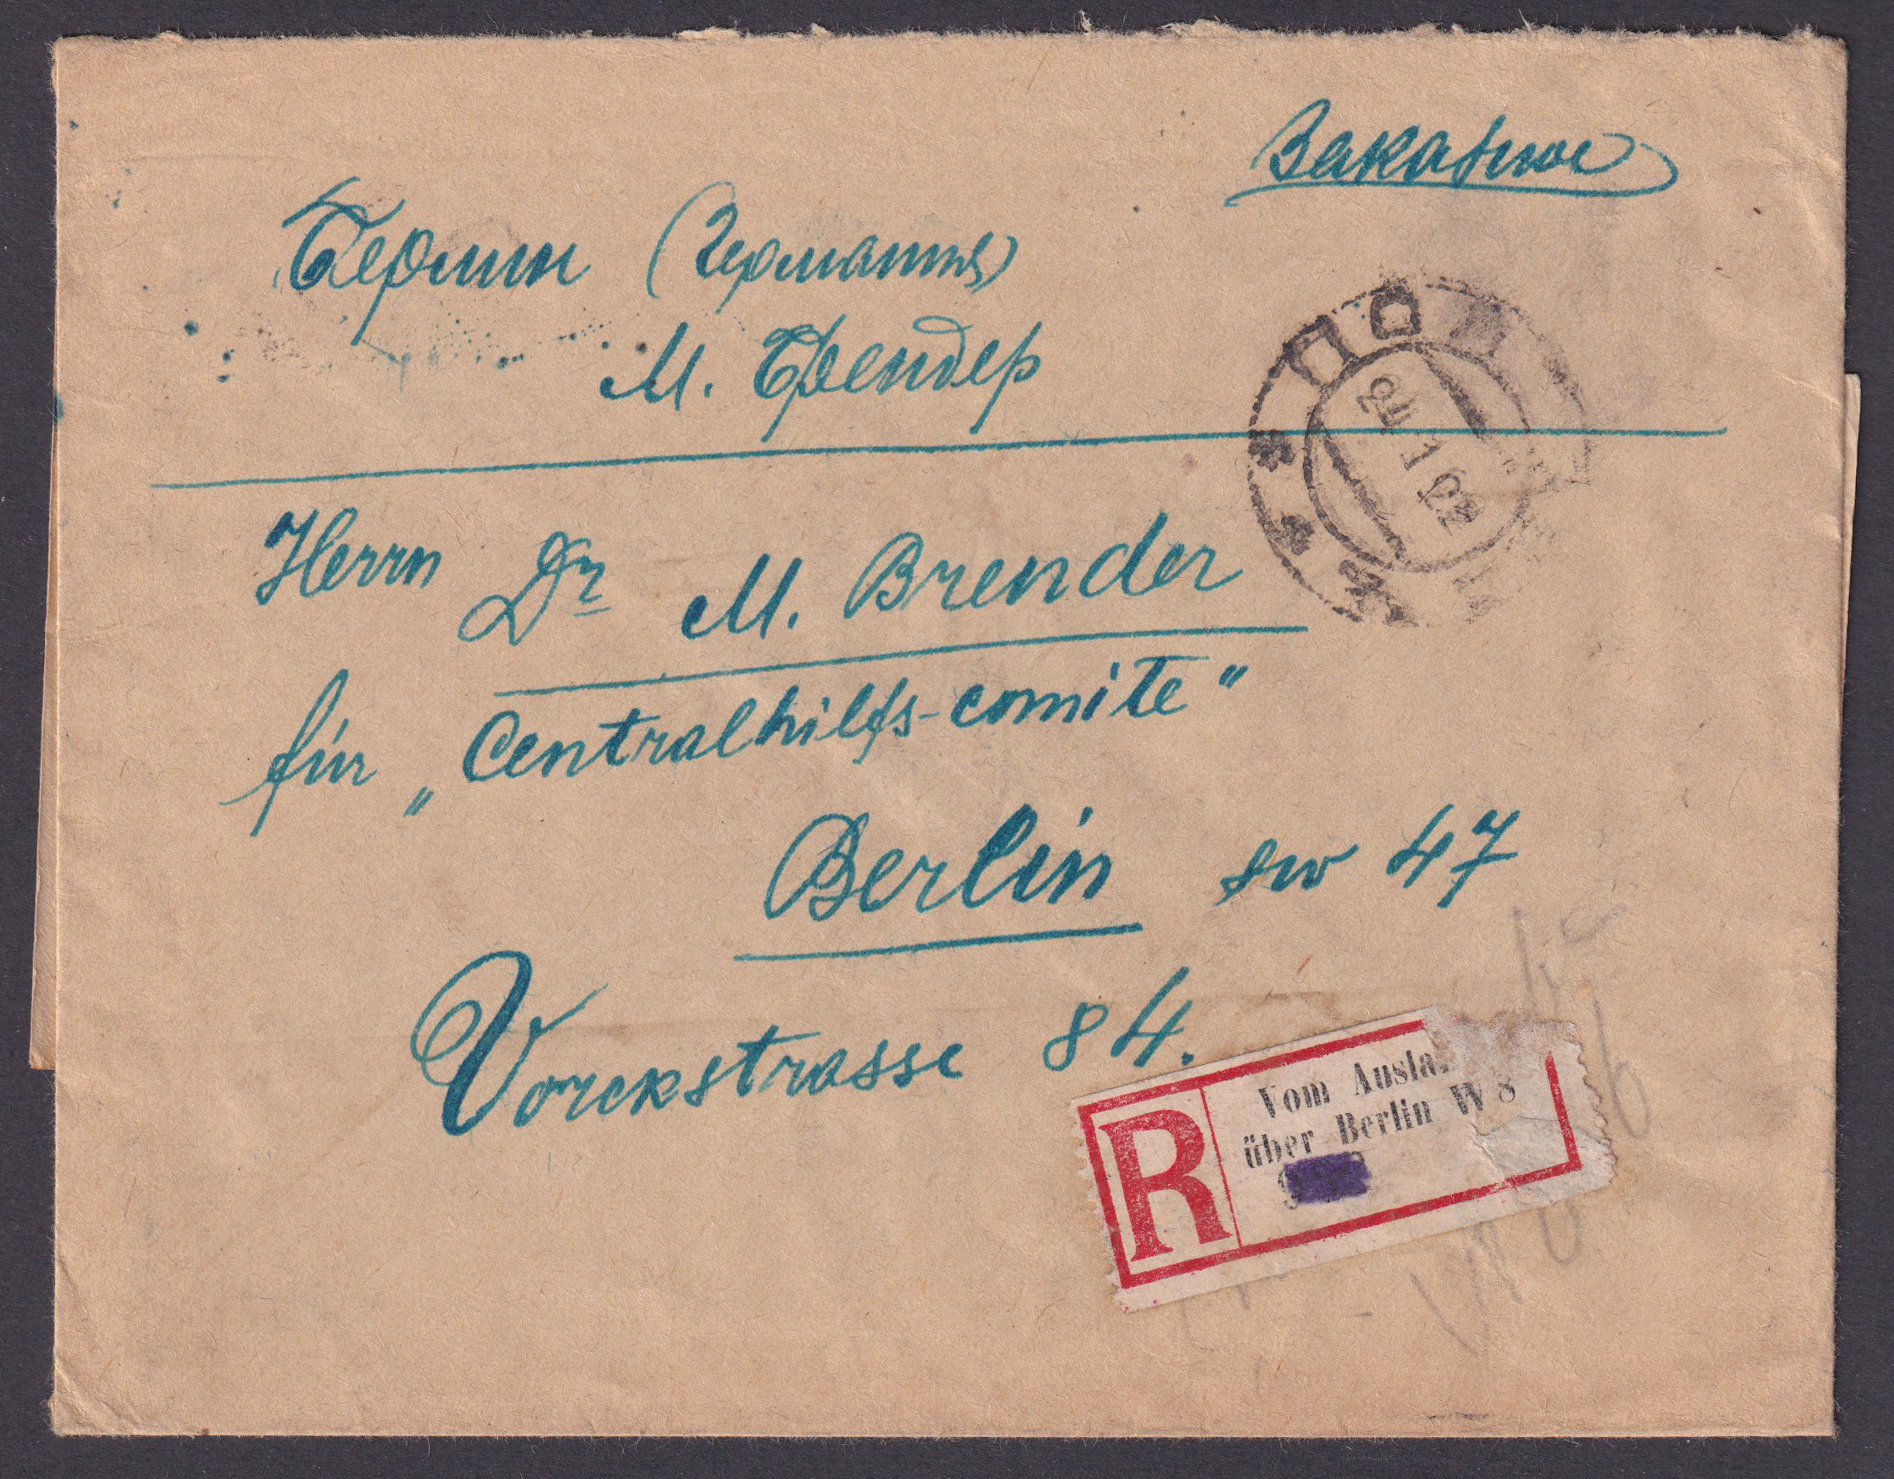 Заказное
Берлин (Германия)
М. Брендер
24 1 02
Herrn Dr M. Brender
für „Centralhilfs-comite"
Berlin sw 47
Vorckstrasse 84.
R
Vom Ausla
über Berlin W 8